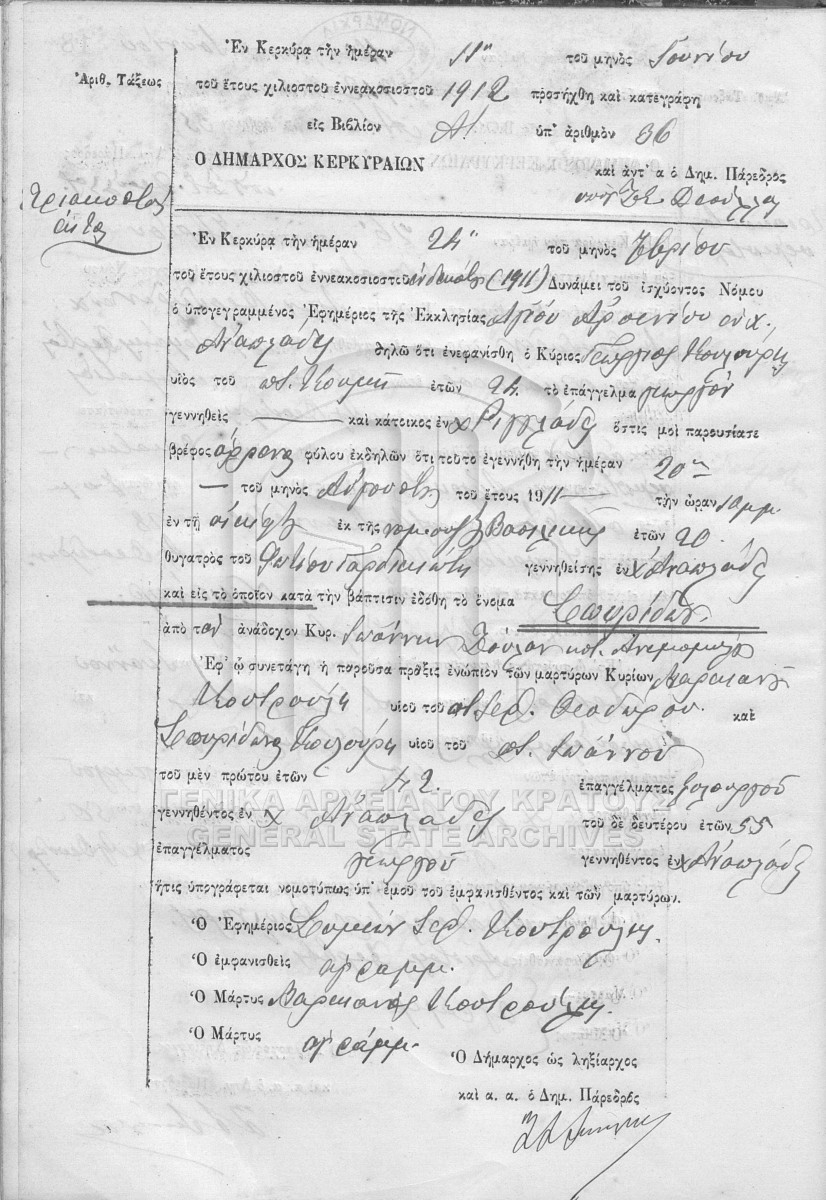 Ἐν Κερκύρᾳ τὴν ἡμέραν 11ην τοῦ μηνὸς Ἰουνίου
Ἀριθ. Τάξεως
τοῦ ἔτους χιλιοστοῦ ἐννεακοσιοστοῦ 1912 προσήχθη καὶ κατεγράφη
εἰς Βιβλίον Α' ὑπ' ἀριθμὸν 36
Ο ΔΗΜΑΡΧΟΣ ΚΕΡΚΥΡΑΙΩΝ
καὶ ἀντ' α ὁ Δημ. Πάρεδρος
Ἐν Κερκύρᾳ τὴν ἡμέραν 24 τοῦ μηνὸς
τοῦ ἔτους χιλιοστοῦ ἐννεακοσιοστοῦ ἑνδεκάτου (1911) Δυνάμει τοῦ ἰσχύοντος Νόμου
ὁ ὑπογεγραμμένος Ἐφημέριος τῆς Ἐκκλησίας Ἁγίου Ἀρσενίου ἐν χ.
Ἀναπλάδες δηλῶ ὅτι ἐνεφανίσθη ὁ Κύριος Γεώργιος Κουλούρης
υἱὸς τοῦ ποτ. ἐτῶν 24 τὸ ἐπάγγελμα γεωργὸν
γεννηθεὶς — καὶ κάτοικος ἐν χ Ριγγλάδες ὅστις μοὶ παρουσίασε
βρέφος ἄρρενος φύλου ἐκδηλῶν ὅτι τοῦτο ἐγεννήθη τὴν ἡμέραν 20ην
— τοῦ μηνὸς Αὐγούστου τοῦ ἔτους 1911 — τὴν ὥραν 10 μμ.
ἐν τῇ οἰκίᾳ ἐκ τῆς νομ. συζ. Βασιλικῆς ἐτῶν 20.
θυγατρὸς τοῦ Φωτίου Γαρδικιώτη γεννηθείσης ἐν χ Ἀναπλάδες
καὶ εἰς τὸ ὁποῖον κατὰ τὴν βάπτισιν ἐδόθη τὸ ὄνομα Σπυρίδων.
ἀπὸ τὸν ἀνάδοχον Κυρ. Ἰωάννην
Ἐφ' ᾧ συνετάγη ἡ παροῦσα πρᾶξις ἐνώπιον τῶν μαρτύρων Κυρίων
Κουτρούλη υἱοῦ τοῦ ποτ Ἱερ. Θεοδώρου. καὶ
Σπυρίδωνα Κουλούρη υἱοῦ τοῦ ποτ. Ἰωάννου
τοῦ μὲν πρώτου ἐτῶν 42. ἐπαγγέλματος ξυλουργοῦ
ΓΕΝΙΚΑ ΑΡΧΕΙΑ ΤΟΥ ΚΡΑΤΟΥΣ
γεννηθέντος ἐν χ Ἀναπλάδες τοῦ δὲ δευτέρου ἐτῶν 55
GENERAL STATE ARCHIVES
ἐπαγγέλματος γεωργοῦ γεννηθέντος ἐν χ Ἀναπλάδες
ἥτις ὑπογράφεται νομοτύπως ὑπ' ἐμοῦ τοῦ ἐμφανισθέντος καὶ τῶν μαρτύρων.
Ὁ Ἐφημέριος Συμεὼν Ἱερ. Κουτρούλης.
Ὁ ἐμφανισθεὶς ἀγράμμ.
Ὁ Μάρτυς Κουτρούλης
Ὁ Μάρτυς ἀγράμμ.
Ὁ Δήμαρχος ὡς ληξίαρχος
καὶ α. α. ὁ Δημ. Πάρεδρος